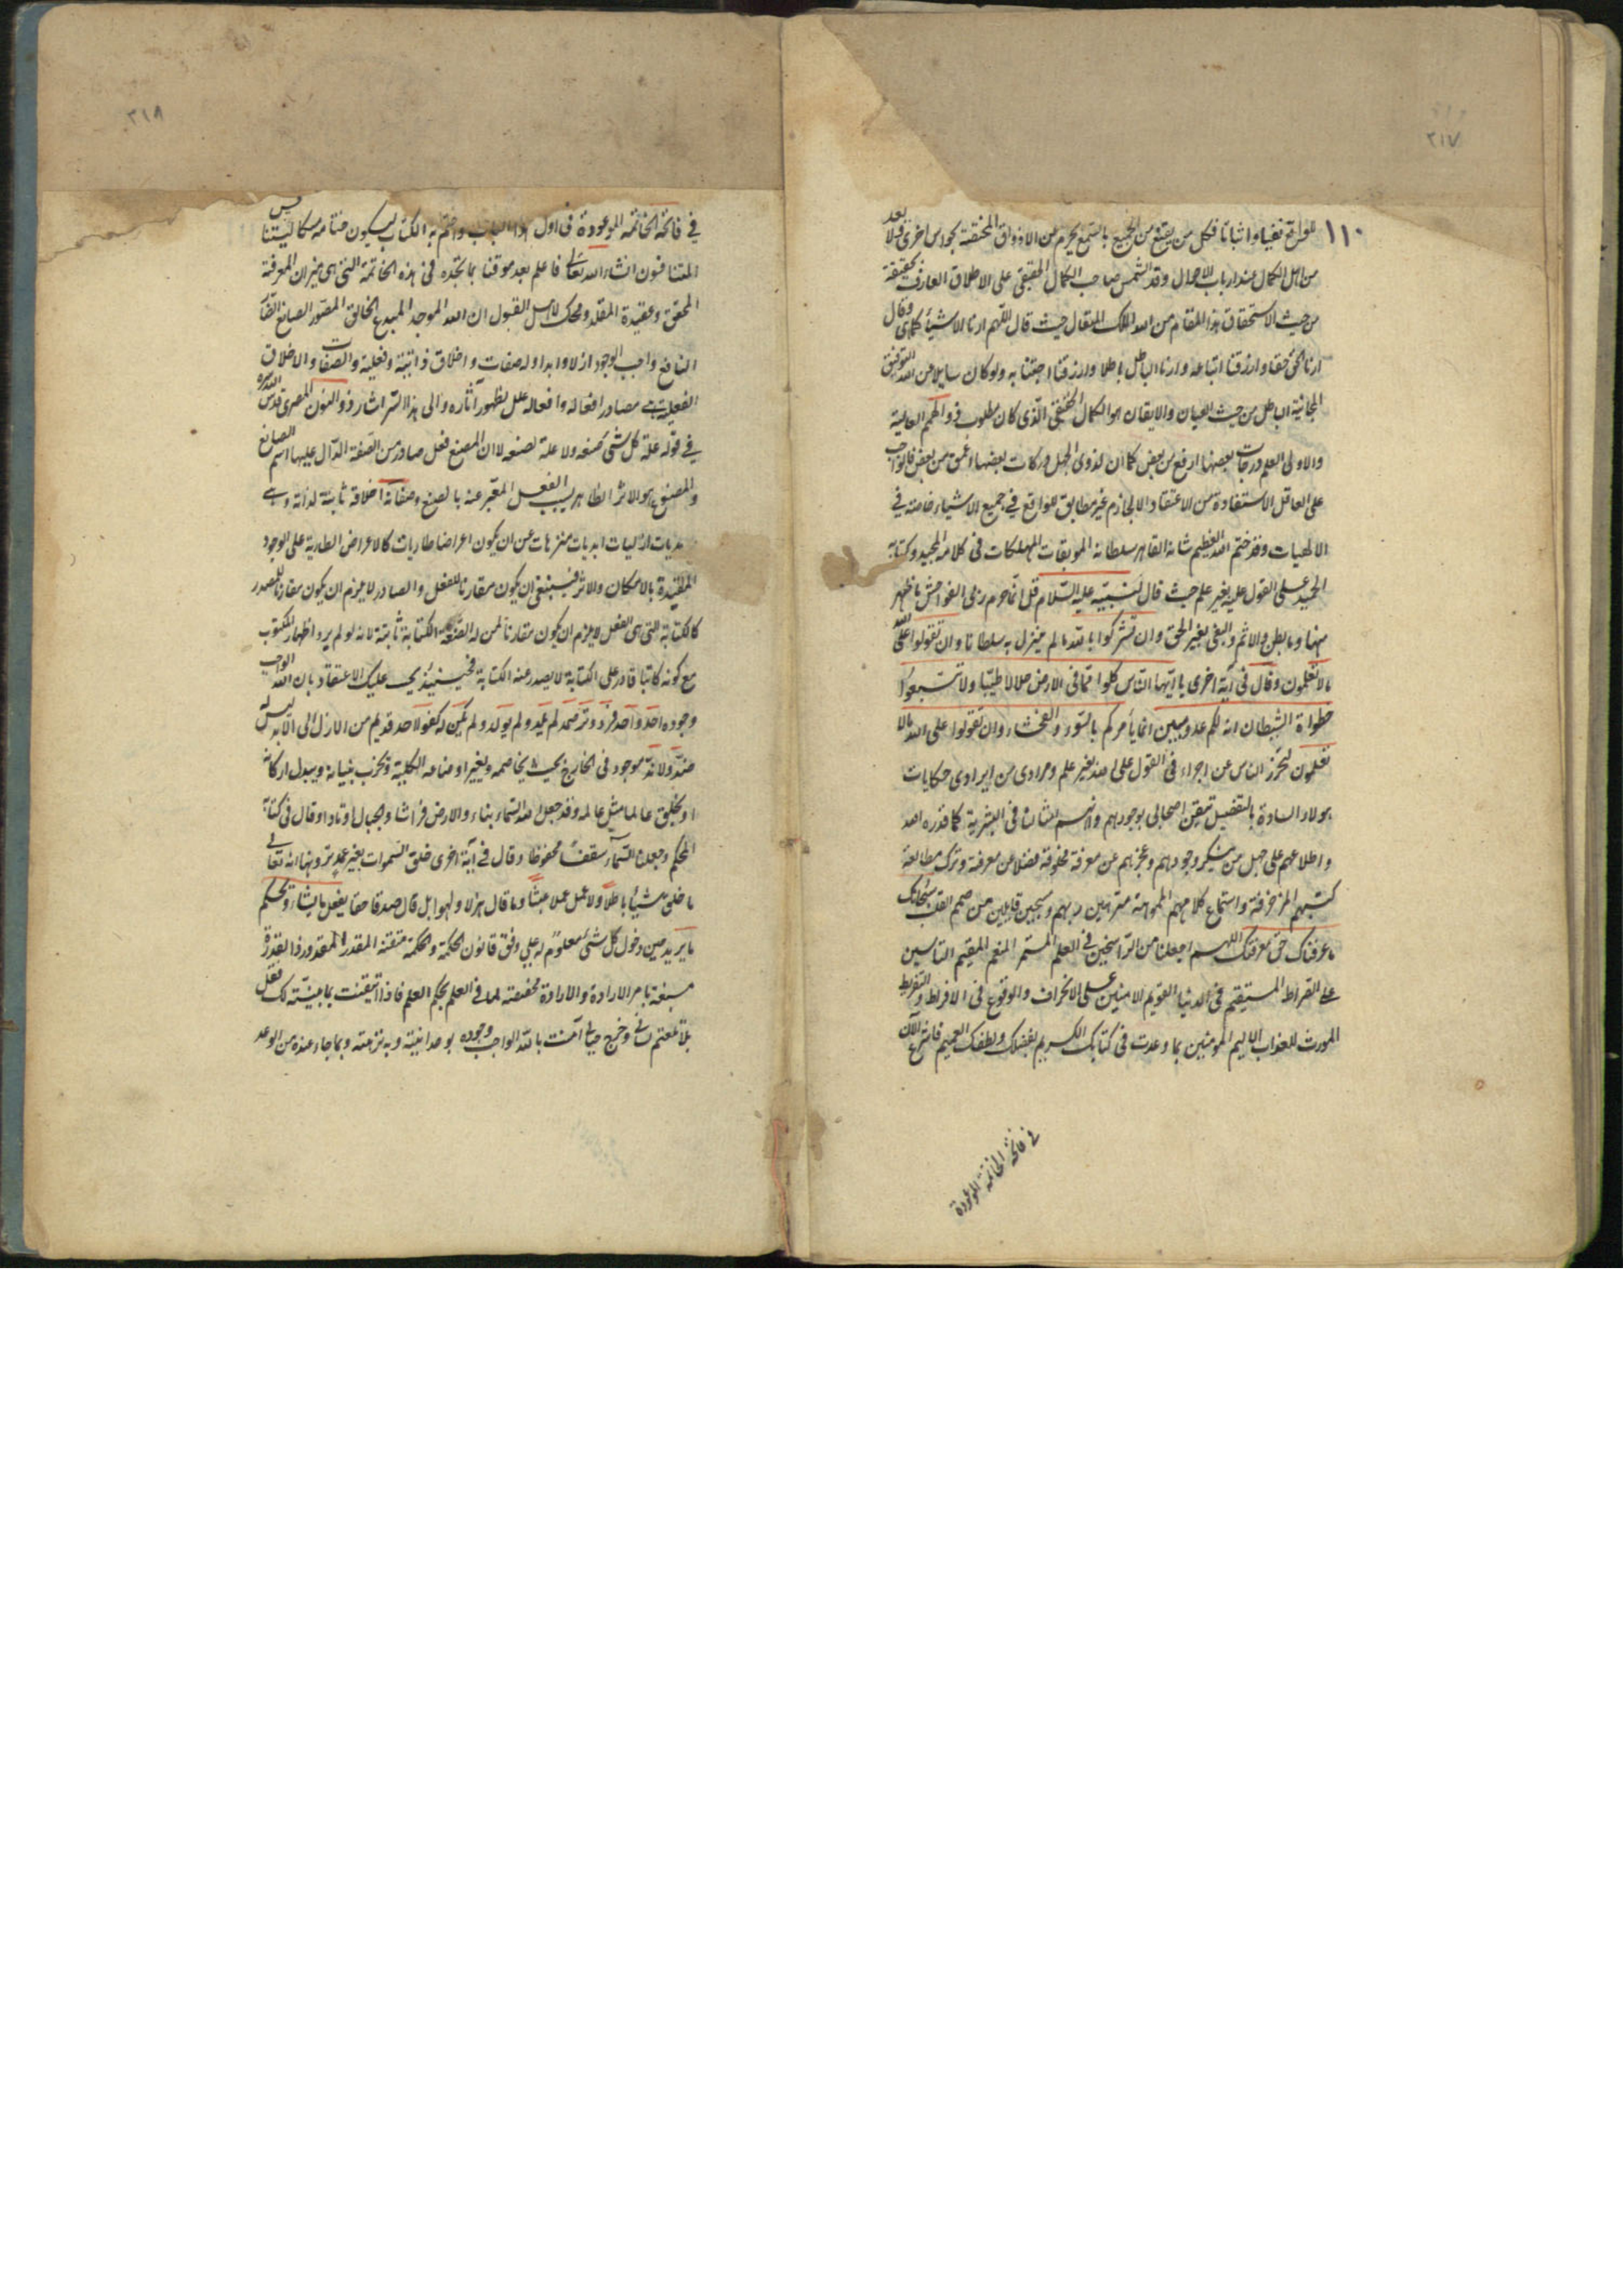 ٢١٧
١١٠
للواقع نفيا واثباتا فكل من يقنع من الجميع بالسمع يحرم من الاذواق المختصة بحواس اخرى ولا يعد
من اهل الكمال عند ارباب الاحوال وقد التمس صاحب الكمال الحقيقى على الاطلاق العارف بحقيقة
من حيث الاستحقاق هذا المقام من الله الملك المتعال حيث قال اللهم ارنا الاشياء كما هى وقال
ارنا الحق حقا وارزقنا اتباعه وارنا الباطل باطلا وارزقنا اجتنابه ولو كان سايلا من الله التوفيق
الباطل من حيث العيان والايقان هو الكمال الحقيقى الذى كان مطلوب ذو الهمم العالية
والاولى العلم درجات بعضها ارفع من بعض كما ان لذوى الجهل دركات بعضها اعمق من بعض فالواجب
على العاقل الاستفادة من الاعتقاد الجازم غير مطابق للواقع في جميع الاشياء خاصته في
الالهيات وقد ختم الله العظيم شانه القاهر سلطانه الموبقات المهلكات فى كلامه المجيد وكتابه
الحميد على القول عليه بغير علم حيث قال لنبيه عليه السلام قل انما حرم ربى الفواحش ما ظهر
منها وما بطن والاثم والبغى بغير الحق وان تشركوا بالله ما لم ينزل به سلطانا وان تقولوا على الله
ما لا تعلمون وقال فى آية اخرى يا ايها الناس كلوا مما فى الارض حلالا طيبا ولا تتبعوا
خطواة الشيطان انه لكم عدو مبين انما يأمركم بالسوء والفحشاء وان تقولوا على الله ما لا
تعلمون لتحرز الناس عن اجراء فى القول على الله بغير علم ومرادى من ايرادى حكايات
هولاء السادة بالتفصيل تيقن اصحابى بوجودهم وانهم امثالنا فى البشرية كما قدره الله
واطلاعهم على جهل من ينكر وجودهم وعجزهم عن معرفة مخلوقة فضلا عن معرفته وترك مطالعة
كتبهم المزخرفة واستماع كلامهم المموهة متوجهين ربهم مسبحين قايلين من صميم القلب سبحانك
ما عرفناك حق معرفتك اللهم اجعلنا من الراسخين في العلم المستمر المنعم المقيم
على الصراط المستقيم فى الدنيا القويم الامنين على الانحراف والوقوع فى الافراط والتفريط
المورث للعذاب الاليم المومنين بما وعدت فى كتابك الكريم بفضلك ولطفك العميم فاشرع الآن
في فاتحة الخاتمة الموعودة
٢١٨
في فاتحة الخاتمة الموعودة فى اول هذا الباب واختم به الكتاب ليكون ختامه مسكا ليتنافس
المتنافسون انشاء الله تعالى فاعلم بعد موقنا بما تجده فى هذه الخاتمة التى هى ميزان المعرفة
المحقق وعقيدة المقلد ومحك لاهل القبول ان الله الموجد المبدع الخالق المصور الصانع
النافع واجب الوجود ازلا وابدا وله صفات واخلاق ذاتية وفعلية والصفات والاخلاق
الفعلية هى مصادر افعاله وافعاله علل لظهور آثاره والى هذا السر اشار ذو النون المصرى قدس الله سره
في قوله علة كل شئ صنعه ولا علة لصنعه لان الصنع فعل صادر من الصفة الدال عليها اسم الصانع
والمصنوع هو الاثر الظاهر بسبب الفعل المعبر عنه بالصنع وصفاته اخلاقه ثابتة لذاته وهى
ازليات ابديات منزهات من ان يكون اعراضا طاريات كالاعراض الطارية على الوجود
المقيدة بالامكان والاثر فينبغى ان يكون مقارنا للفعل والصادر لا يلزم ان يكون مقارنا للمصدر
كالكتابة التى هى الفعل لا يلزم ان يكون مقارنا لمن له الصفة الكتابة ثابتة لانه لو لم يرد اظهار المكتوب
مع كونه كاتبا قادر على الكتابة لا يصدر عنه الكتابة فحينئذ يجب عليك الاعتقاد بان الله الواجب
وجوده احد واحد فرد وتر صمد لم يلد ولم يولد ولم يكن له كفوا احد قديم من الازل الى الابد ليس له
ضد ولا ند موجود فى الخارج بحيث يخاصمه ويغير اوضاعه الكلية ويخرب بنيانه ويبدل اركانه
او يخلق عالما مثل عالمه وقد جعل الله السماء بناء والارض فراشا والجبال اوتادا وقال فى كتابه
المحكم وجعلنا السماء سقفا محفوظا وقال في آية اخرى خلق السموات بغير عمد ترونها انه تعالى
ما خلق شيئا باطلا ولا عمل عملا عبثا وما قال هزلا ولهوا بل قال صدقا حقا يفعل ما يشاء ويحكم
ما يريد من دخول كل شئ معلوم له على وفق قانون الحكمة والحكمة متقنة المقدر المقدور ذا القدرة
مسبغة بامر الارادة والارادة مخصصة لما فى العلم بحكم العلم فاذا تيقنت بما بينته لك فقل
بلا تلعثم لسانى آمنت بالله الواجب وجوده بوحدانيته وبه نزهته وبما جاء عنده من الوعد